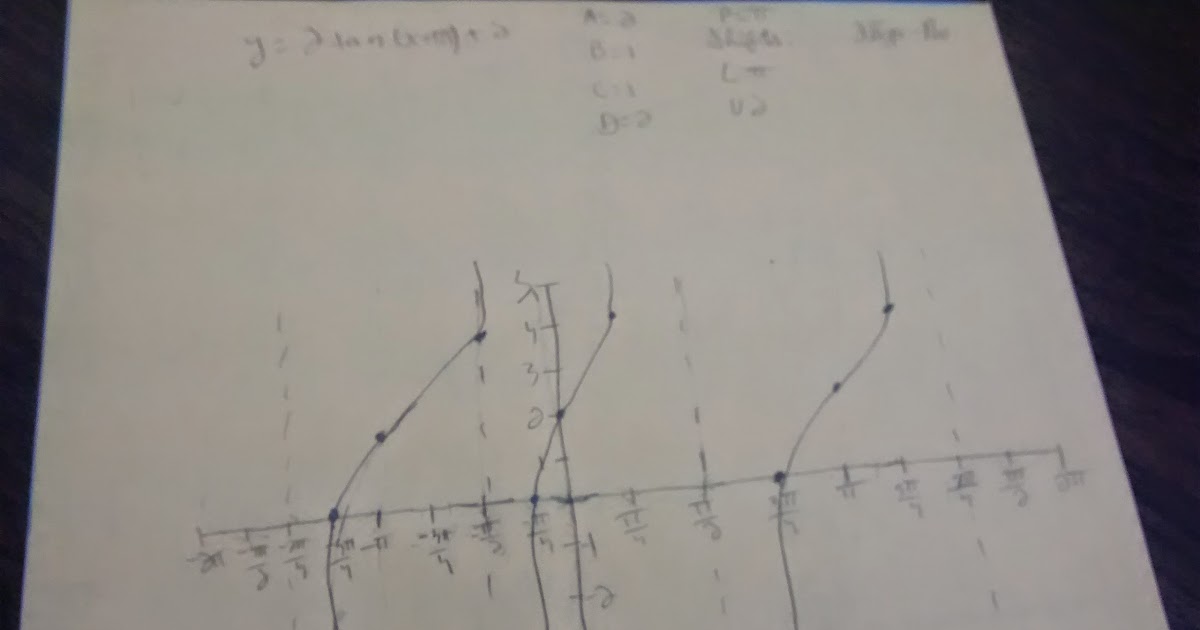 y = 2 tan (x+π) + 2
A = 2
B = 1
C = 1
D = 2
P = π
Shifts
L π
U 2
5
4
3
2
1
-1
-2
-2π -3π/2 -5π/4 -π -3π/4 -π/2 -π/4 π/4 π/2 3π/4 π 5π/4 3π/2 2π